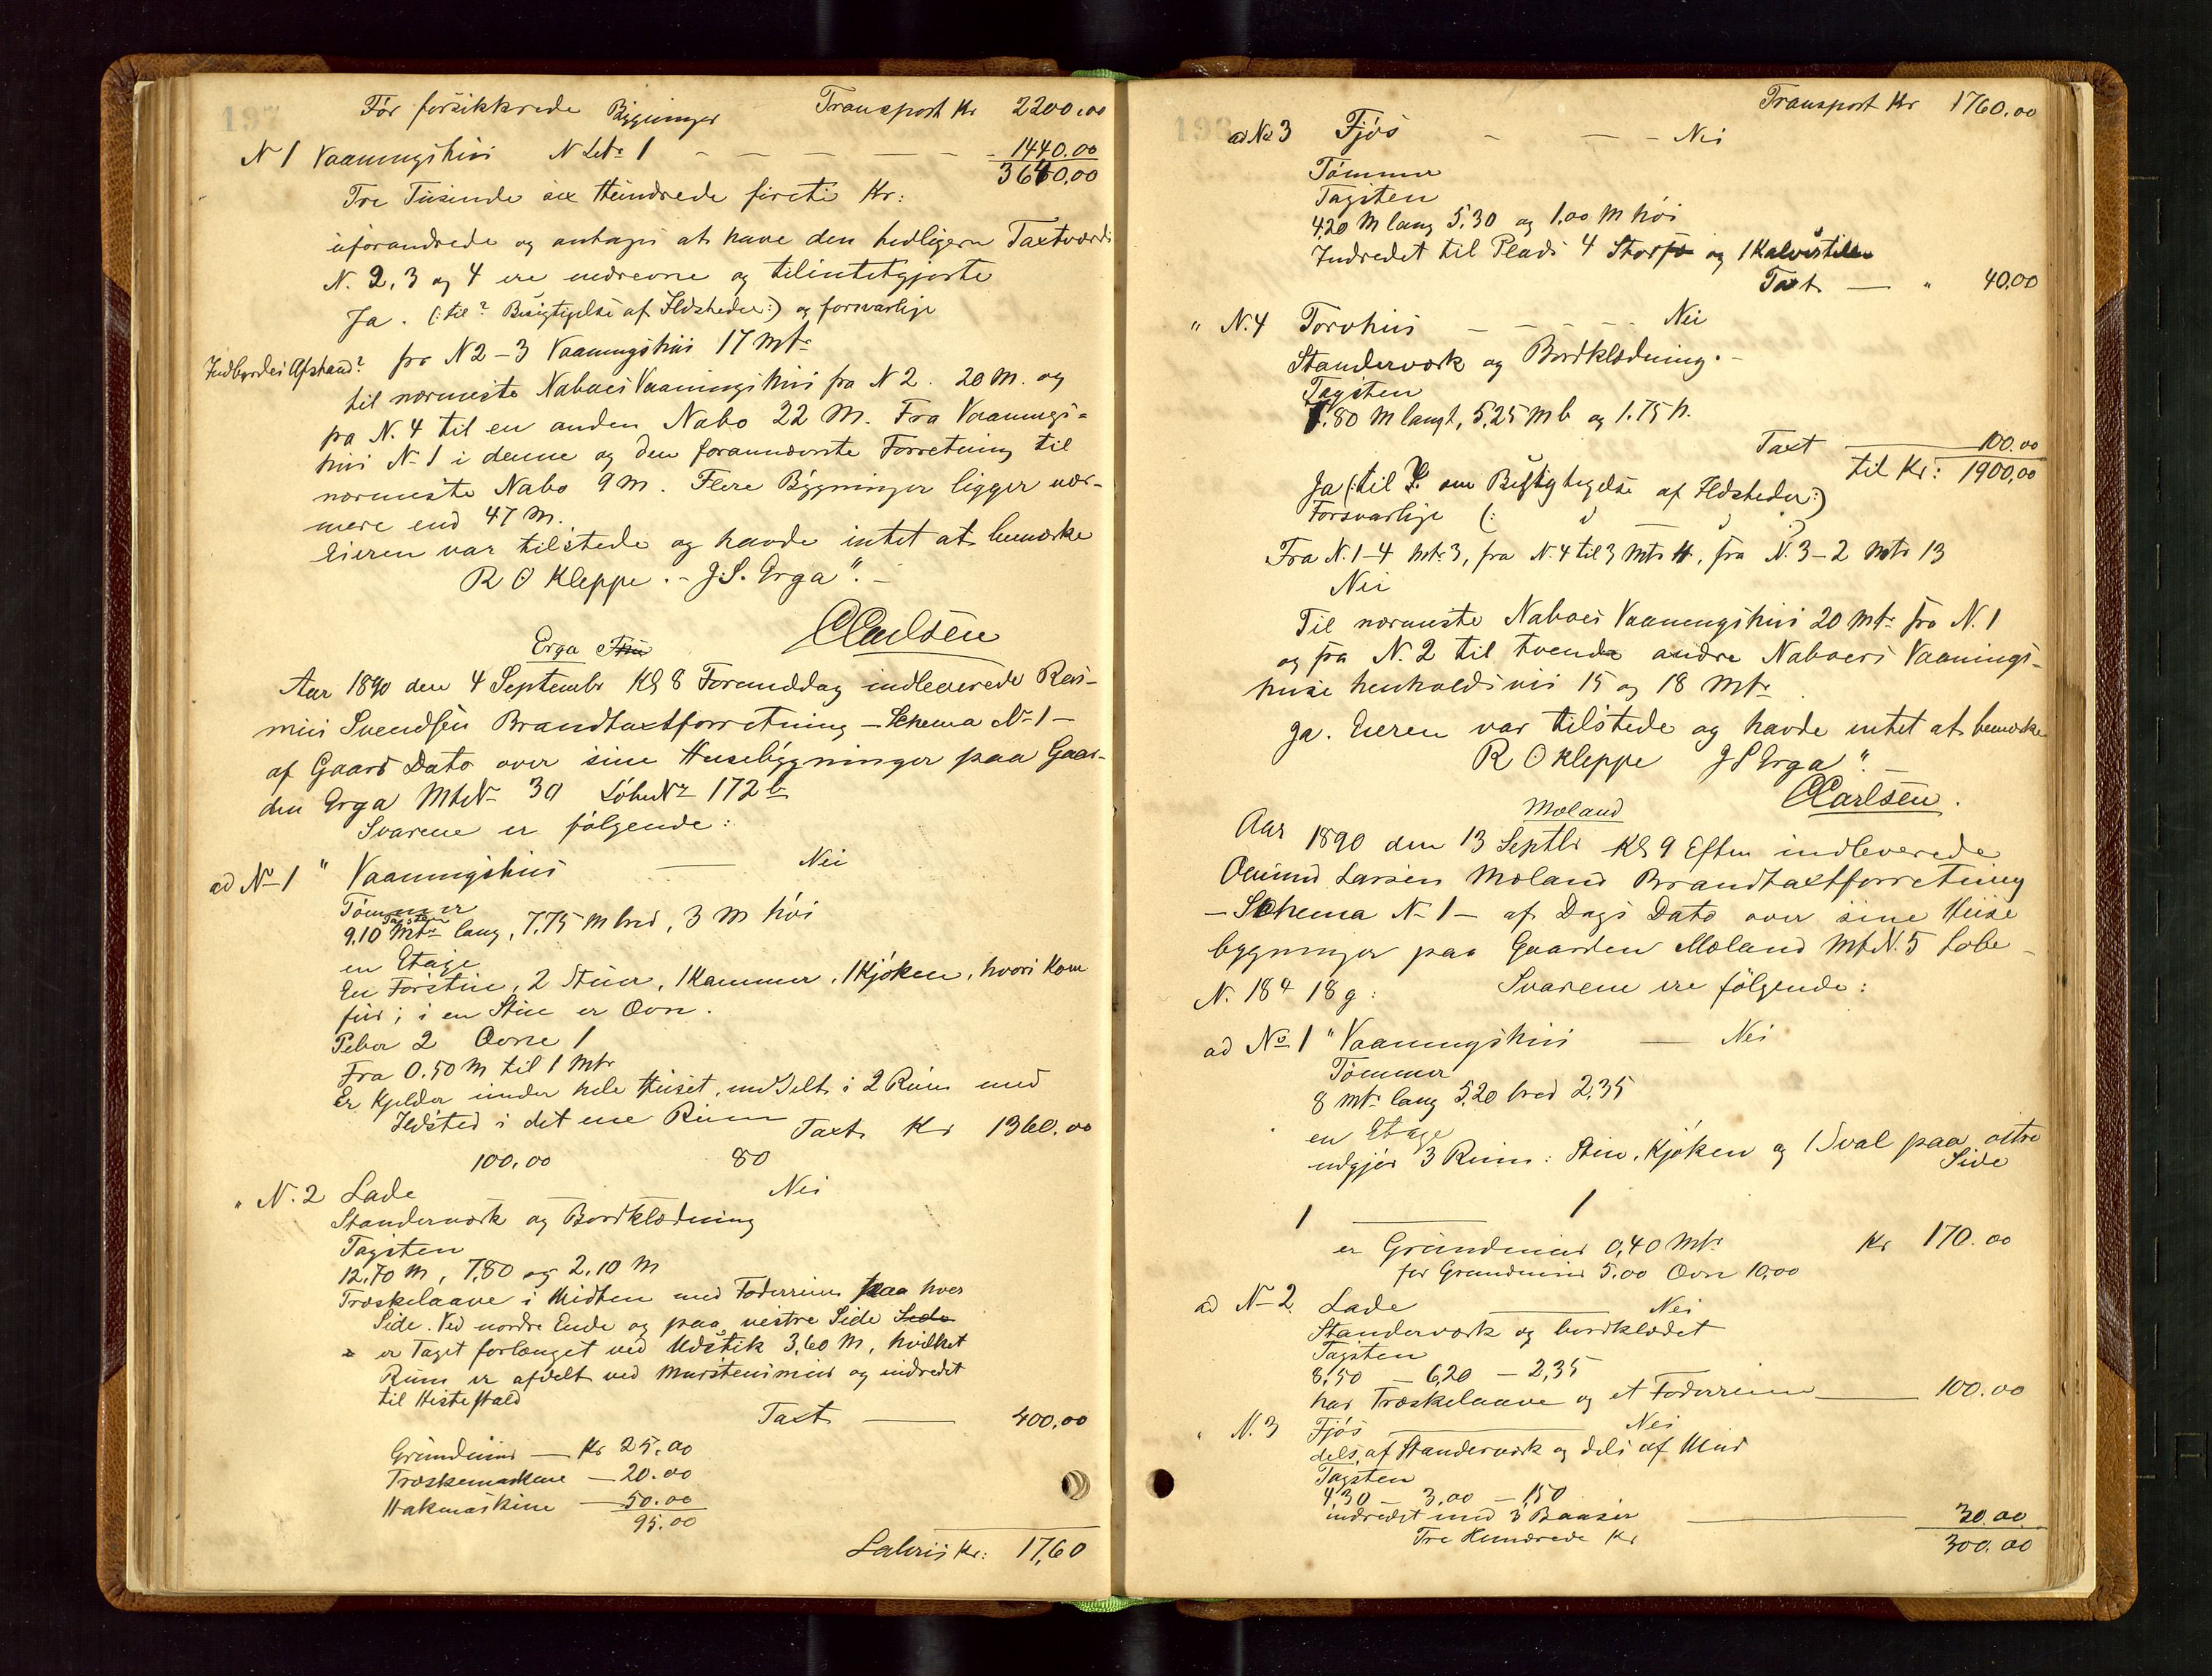 197
Før forsikkrede Bygninger Transport Kr 2200.00
N 1 Vaaningshus N Litr 1 - - - - - - 1440.00
3640.00
Tre Tusinde sex Hundrede fireti Kr:
uforandrede og antages at have den hidligere Taxtværdi
N. 2, 3 og 4 ere nedrevne og tilintetgjorte
Ja. (: til ? Besigtigelse af Ildsteder:) og forsvarlige
Indbyrdes Afstand? fra N 2-3 Vaaningshus 17 Mtr
til nærmeste Naboes Vaaningshus fra N 2. 20 M. og
fra N. 4 til en anden Nabo 22 M. Fra Vaanings-
hus N- 1 i denne og den forannævnte Forretning til
nærmeste Nabo 9 M. Flere Bygninger ligger nær-
mere end 47 M.
Eieren var tilstede og havde intet at bemærke
R O Kleppe. - J. S. Erga". -
CCarlsen
Erga
Aar 1890 den 4 Septembr Kl 8 Formiddag indleverede Ras-
mus Svendsen Brandtaxtforretning - Schema N- 1 -
af Gaars Dato over sine Husebygninger paa Gaar-
den Erga MtN- 30 LøbeNr 172 b
Svarene er følgende:
ad N- 1 " Vaaningshus — Nei
Tømmer
Tagsten
9.10 Mtr lang, 7.75 M bred, 3 M høi
en Etage
En Forstue, 2 Stuer, 1 Kammer, 1 Kjøken, hvori Kom
fur; i en Stue er Ovn.
Piber 2 Ovne 1
Fra 0.50 M til 1 Mtr
Er Kjelder under hele Huset, inddelt i 2 Rum med
Ildsted i det ene Rum Taxt Kr 1360.00
100.00 80
" N. 2 Lade — — — Nei
Standerværk og Bordklædning
Tagsten
12.70 M, 7.80 og 2.10 M
Træskelaave i Midten med Foderrum paa hver
Side. Ved nordre Ende og paa vestre Side Side
er Taget forlænget ved Udstik 3,60 M, hvilket
Rum er afdelt ved Murstensmur og indredet
til Hestestald
Taxt — 400.00
Grundmur — Kr 25.00
Træskemaskine — 20.00
Hakmaskine — 50.00
95.00
Lateris Kr: 17,60
198
Transport Kr 1760.00
ad No 3 Fjøs - — - Nei
Tømmer
Tagsten
4,20 M lang 5,30 og 1,00 M høi
Indredet til Plads 4 Storfæ og 1 Kalvestille
Taxt — " 40.00
" N. 4 Torvhus - - - - Nei
Standerværk og Bordklædning. -
Tagsten
7.80 M langt, 5,25 M b og 1.75 h.
Taxt — 100.00
til Kr: 1900,00
Ja (: til S. om Besigtigelse af Ildsteder:)
Forsvarlige (: " — " :)
Fra N. 1-4 Mtr 3, fra N. 4 til 3 Mtr 4, fra N. 3-2 Mtr 13
Nei
Til nærmeste Naboes Vaaningshus 20 Mtr fra N. 1
og fra N. 2 til tvende andre Naboers Vaanings-
huse henholdsvis 15 og 18 Mtr
Ja. Eieren var tilstede og havde intet at bemærke
R O Kleppe J S Erga". -
CCarlsen.
Moland
Aar 1890 den 13 Septbr Kl 9 Efterm indleverede
Larsen Moland Brandtaxtforretning
- Schema N- 1 - af Dags Dato over sine Huse
bygninger paa Gaarden Moland MtN. 5 Løbe-
N. 184 18 g: Svarene ere følgende:
ad No 1 " Vaaningshus — Nei
Tømmer
8 Mtr lang 5,20 bred 2,35
en Etage
udgjør 3 Rum: Stue, Kjøken og 1 Sval paa østre
Side
1 — 1
er Grundmur 0,40 Mtr Kr 170.00
for Grundmur 5.00 Ovn 10,00
ad N- 2. Lade — Nei
Standerværk og bordklædet
Tagsten
8,50 - 6,20 - 2,35
har Træskelaave og et Foderrum — 100.00
" N. 3 Fjøs — Nei
dels af Standerværk og dels af Mur
Tagsten
4,30 - 3,00 - 1,50
indredet med 3 Baaser — 30.00
Tre Hundrede Kr 300.00